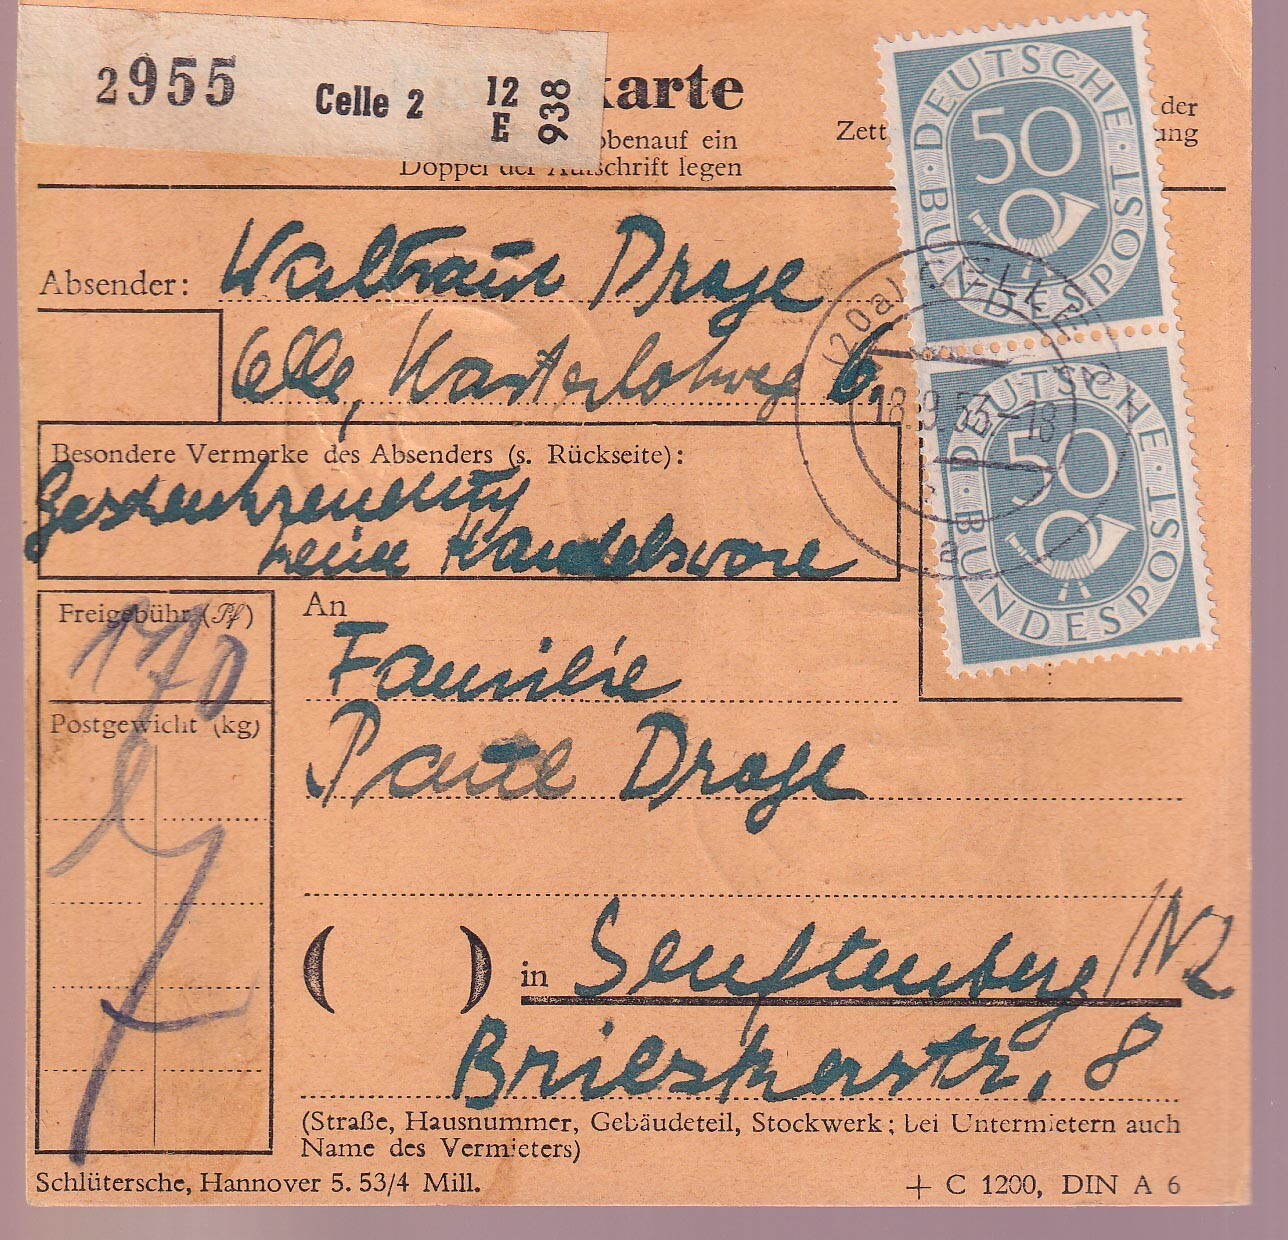 2955 Celle 2 12 E 938
karte
obenauf ein
Doppel der Aufschrift legen
Zett
der
ung
DEUTSCHE BUNDESPOST
50
DEUTSCHE BUNDESPOST
50
(20a) CELLE
18.9.53.-18
a
Absender: Waltraut Droge
Celle, 6.
Besondere Vermerke des Absenders (s. Rückseite):
Geschenksendung
keine Handelsware
Freigebühr (Pf)
170
Postgewicht (kg)
7
An
Familie
Paul Droge
( ) in Senftenberg/NL
Brieskerstr. 8
(Straße, Hausnummer, Gebäudeteil, Stockwerk; bei Untermietern auch
Name des Vermieters)
Schlütersche, Hannover 5. 53/4 Mill.
+ C 1200, DIN A 6